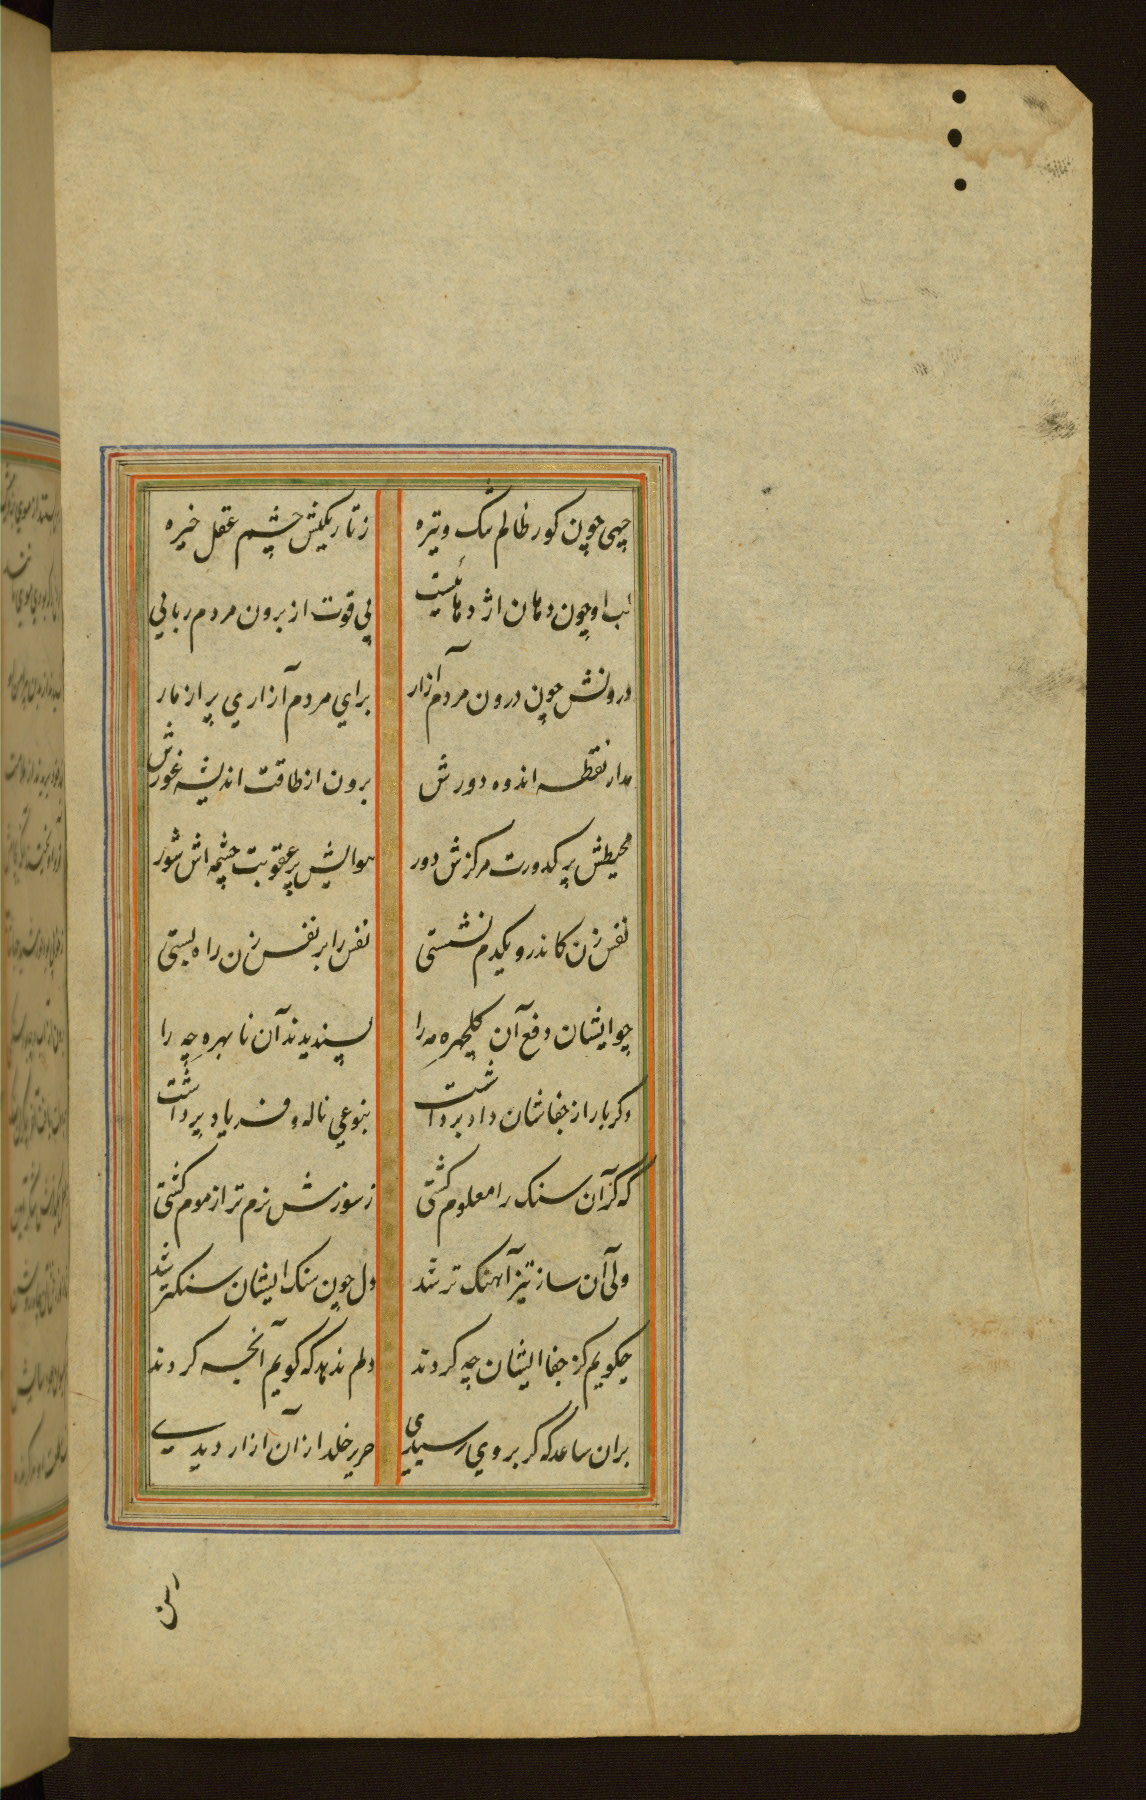 چهی چون کور ظالم تنک و تیره زتاریکیش چشم عقل خیره
لب او چون دهان اژدهائیست پی قوت از برون مردم ربایی
درونش چون درون مردم آزار برای مردم آزاری پر از مار
مدار نقطه اندوه دورش برون از طاقت اندیشه غورش
محیطش پر کدورت مرکزش دور هوایش پر عقوبت چشمه اش شور
نفس زن کاندرو یکدم نشستی نفس را بر نفس زن راه بستی
چو ایشان دفع آن کلچهره مه را پسندیدند آن نا بهره چه را
دکر بار از جفاشان داد برداشت بنوعی ناله و فریاد برداشت
که کر آن سنک را معلوم کشتی زسوزش نرم تر از موم کشتی
ولی آن ساز تیز آهنک تر شد دل چون سنک ایشان سنکتر شد
چکویم کز جفا ایشان چه کردند دلم ندهد که کویم آنچه کردند
بران ساعد که کر بروی رسیدی حریر خلد ازان ازار دیدی
رسن